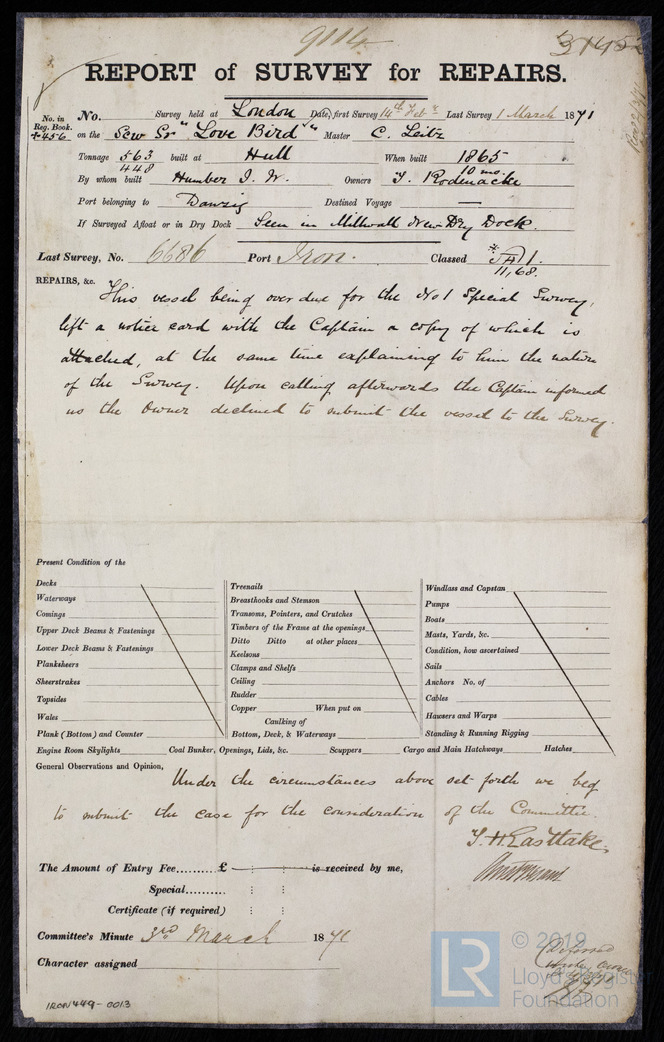 9114
REPORT of SURVEY for REPAIRS.
No. in Reg. Book. 456
No. Survey held at London Date, first Survey 14th Feby Last Survey 1 March 1871
on the Scw Sr "Love Bird" Master C. Leitz
Tonnage 563 built at Hull When built 1865
448 10 mo.
By whom built Humber I. W. Owners T. Rodenacke
Port belonging to Danzig Destined Voyage —
If Surveyed Afloat or in Dry Dock Seen in Millwall New Dry Dock.
Last Survey, No. 6686 Port Iron. Classed
11,68.
REPAIRS, &c. This vessel being over due for the No 1 Special Survey,
left a notice card with the Captain a copy of which is
attached, at the same time explaining to him the nature
of the Survey. Upon calling afterwards the Captain informed
us the Owner declined to submit the vessel to the Survey.
Present Condition of the
Decks
Waterways
Comings
Upper Deck Beams & Fastenings
Lower Deck Beams & Fastenings
Planksheers
Sheerstrakes
Topsides
Wales
Plank (Bottom) and Counter
Treenails
Breasthooks and Stemson
Transoms, Pointers, and Crutches
Timbers of the Frame at the openings
Ditto Ditto at other places
Keelsons
Clamps and Shelfs
Ceiling
Rudder
Copper When put on
Caulking of
Bottom, Deck, & Waterways
Windlass and Capstan
Pumps
Boats
Masts, Yards, &c.
Condition, how ascertained
Sails
Anchors No. of
Cables
Hawsers and Warps
Standing & Running Rigging
Engine Room Skylights Coal Bunker, Openings, Lids, &c. Scuppers Cargo and Main Hatchways Hatches
General Observations and Opinion, Under the circumstances above set forth we beg
to submit the case for the consideration of the Committee.
T. H. Eastlake
The Amount of Entry Fee......... £ is received by me,
Special..........
Certificate (if required)
Committee's Minute 3rd March 1871
Character assigned
Deferred
IRON449-0013
LR
© 2019
Lloyd's Register
Foundation